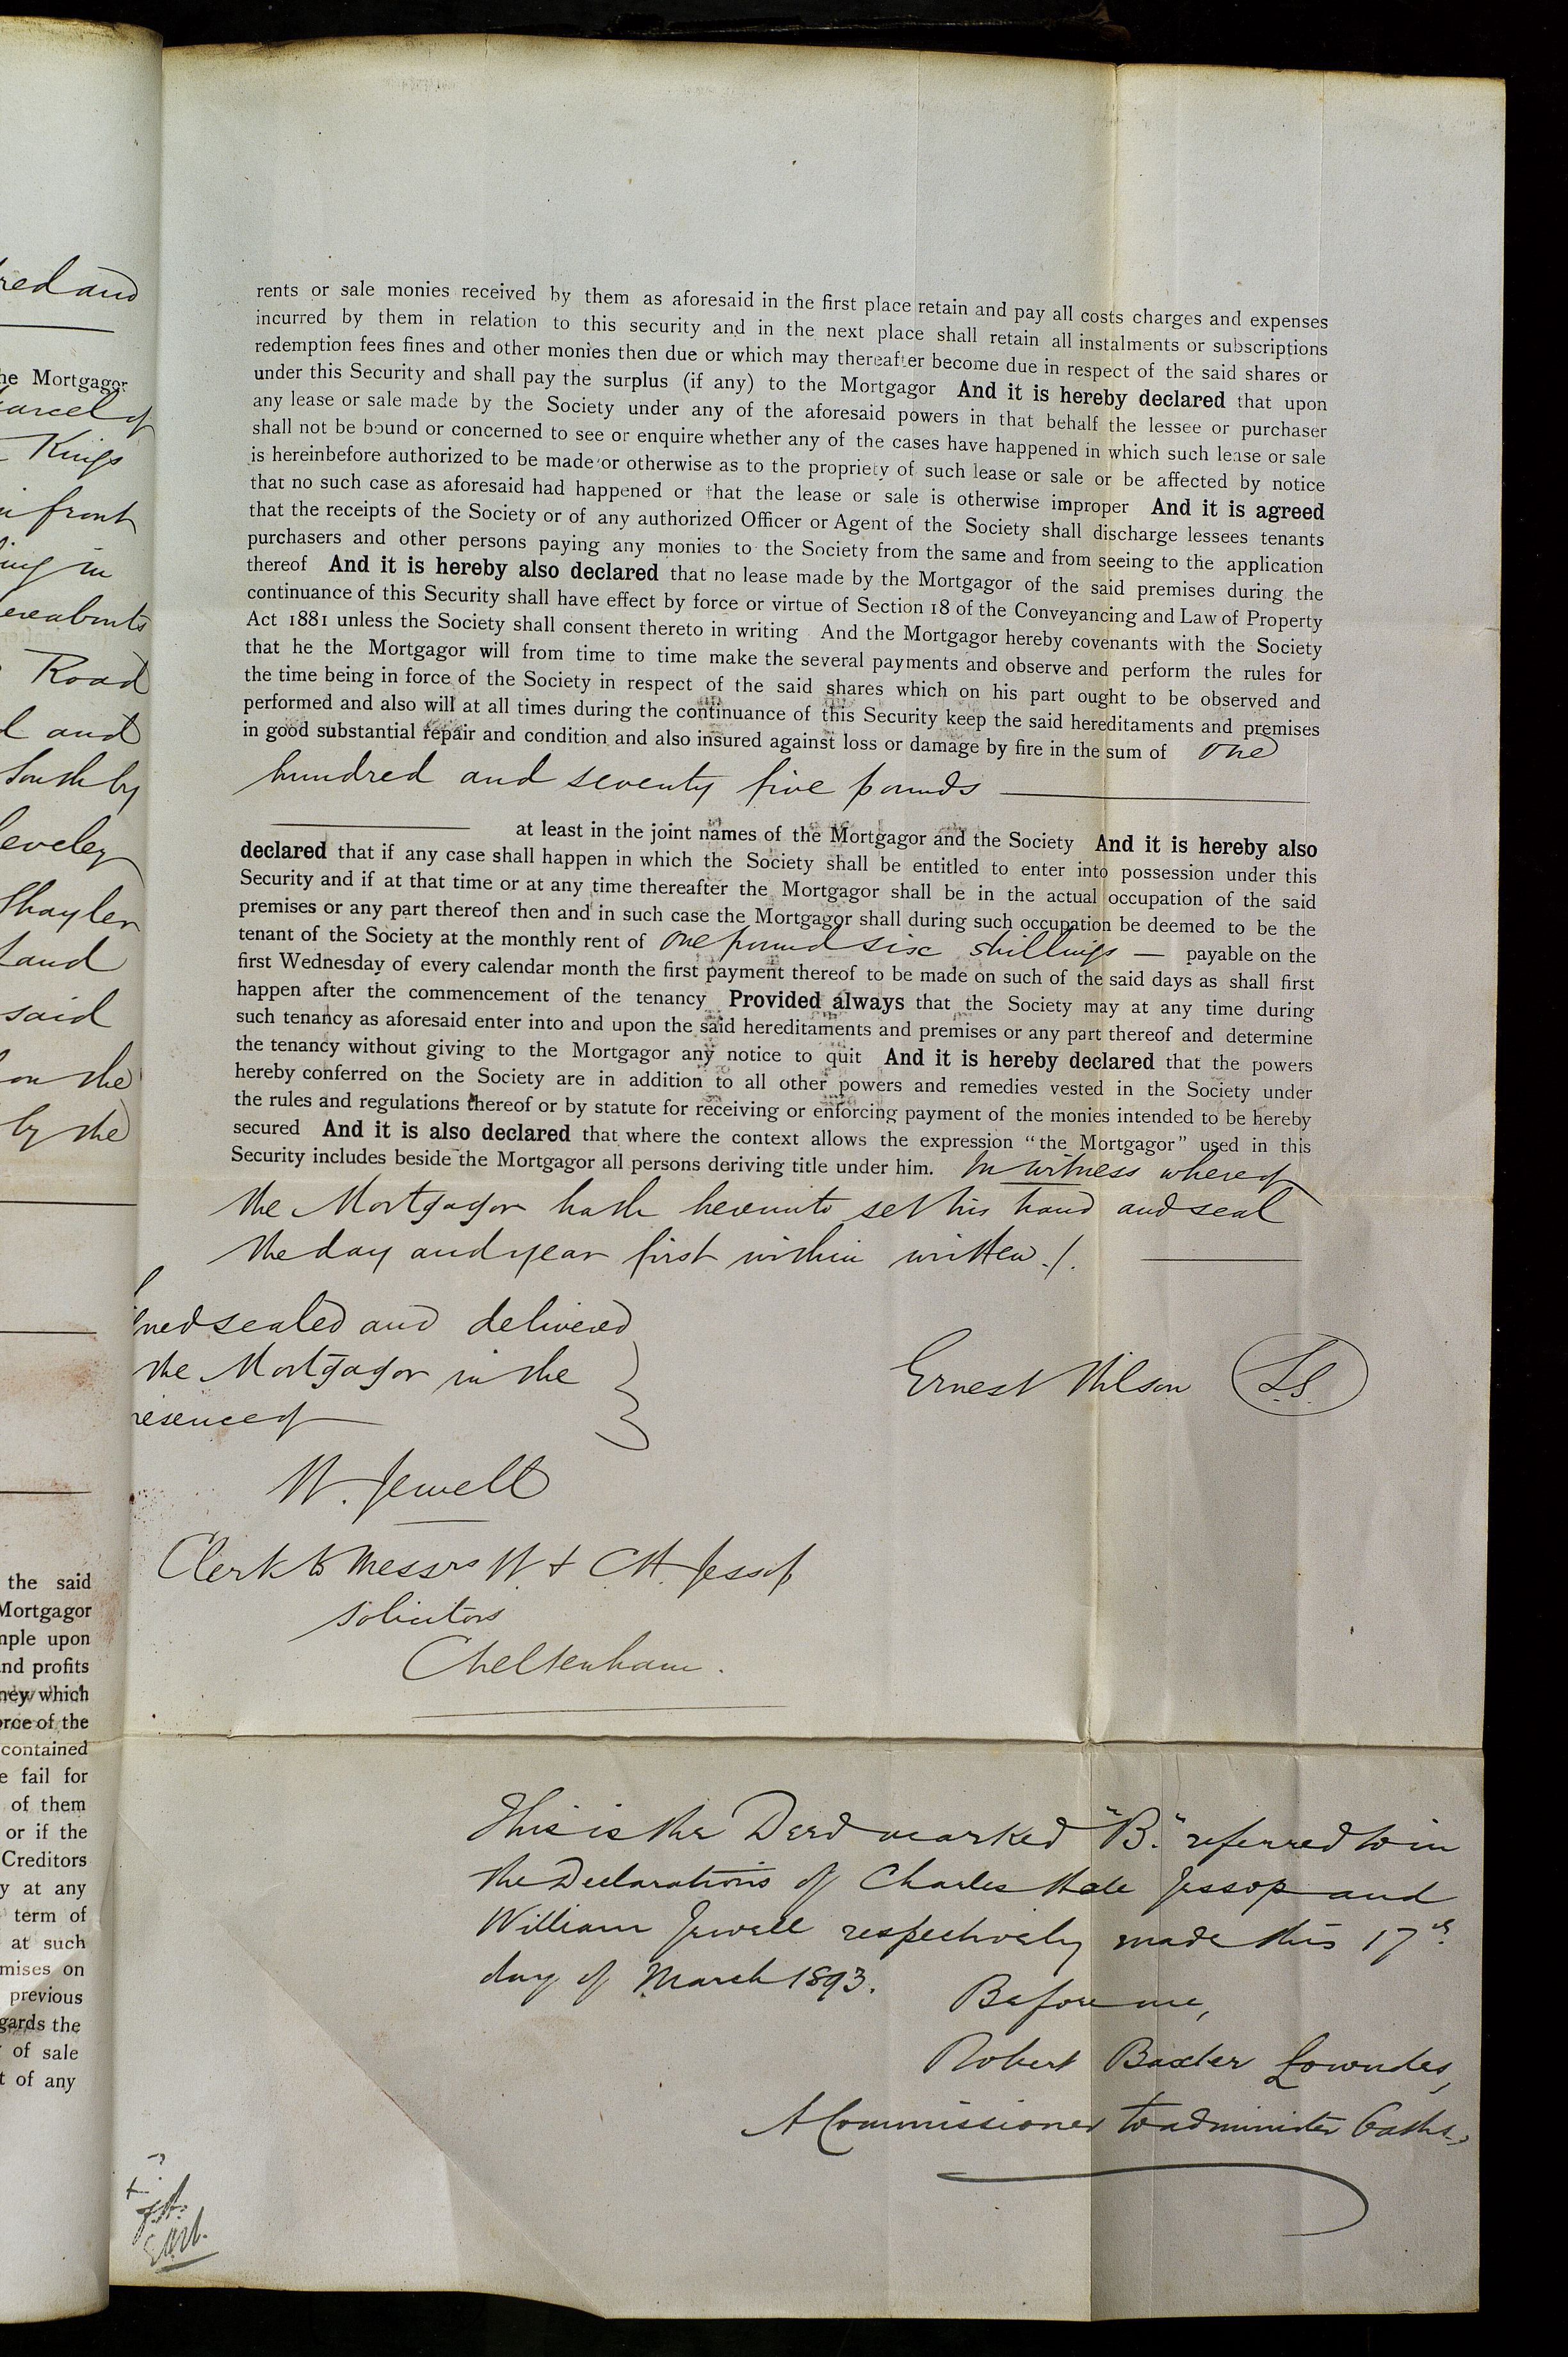 red and
he Mortgagor
arcel of
Kings
front
ing in
ereabouts
Road
l and
South by
eveley
Shayler
Land
said
on the
by the
the said
Mortgagor
mple upon
nd profits
ney which
orce of the
contained
e fail for
of them
or if the
Creditors
y at any
term of
at such
mises on
previous
gards the
of sale
t of any
rents or sale monies received by them as aforesaid in the first place retain and pay all costs charges and expenses
incurred by them in relation to this security and in the next place shall retain all instalments or subscriptions
redemption fees fines and other monies then due or which may thereafter become due in respect of the said shares or
under this Security and shall pay the surplus (if any) to the Mortgagor And it is hereby declared that upon
any lease or sale made by the Society under any of the aforesaid powers in that behalf the lessee or purchaser
shall not be bound or concerned to see or enquire whether any of the cases have happened in which such lease or sale
is hereinbefore authorized to be made or otherwise as to the propriety of such lease or sale or be affected by notice
that no such case as aforesaid had happened or that the lease or sale is otherwise improper And it is agreed
that the receipts of the Society or of any authorized Officer or Agent of the Society shall discharge lessees tenants
purchasers and other persons paying any monies to the Society from the same and from seeing to the application
thereof And it is hereby also declared that no lease made by the Mortgagor of the said premises during the
continuance of this Security shall have effect by force or virtue of Section 18 of the Conveyancing and Law of Property
Act 1881 unless the Society shall consent thereto in writing And the Mortgagor hereby covenants with the Society
that he the Mortgagor will from time to time make the several payments and observe and perform the rules for
the time being in force of the Society in respect of the said shares which on his part ought to be observed and
performed and also will at all times during the continuance of this Security keep the said hereditaments and premises
in good substantial repair and condition and also insured against loss or damage by fire in the sum of one
hundred and seventy five pounds
at least in the joint names of the Mortgagor and the Society And it is hereby also
declared that if any case shall happen in which the Society shall be entitled to enter into possession under this
Security and if at that time or at any time thereafter the Mortgagor shall be in the actual occupation of the said
premises or any part thereof then and in such case the Mortgagor shall during such occupation be deemed to be the
tenant of the Society at the monthly rent of one pound six shillings — payable on the
first Wednesday of every calendar month the first payment thereof to be made on such of the said days as shall first
happen after the commencement of the tenancy Provided always that the Society may at any time during
such tenancy as aforesaid enter into and upon the said hereditaments and premises or any part thereof and determine
the tenancy without giving to the Mortgagor any notice to quit And it is hereby declared that the powers
hereby conferred on the Society are in addition to all other powers and remedies vested in the Society under
the rules and regulations thereof or by statute for receiving or enforcing payment of the monies intended to be hereby
secured And it is also declared that where the context allows the expression "the Mortgagor" used in this
Security includes beside the Mortgagor all persons deriving title under him. In witness whereof
the Mortgagor hath hereunto set his hand and seal
the day and year first within written./.
ned sealed and delivered
the Mortgagor in the
resence of
Ernest Wilson L.S.
W. Jewell
Clerk to Messrs W. & C.H. Jessop
Solicitors
Cheltenham.
This is the Deed marked "B." referred to in
the Declarations of Charles Hale Jessop and
William Jewell respectively made this 17th
day of March 1893.
Before me,
Robert Baxter Lowndes,
A Commissioner to administer Oaths.